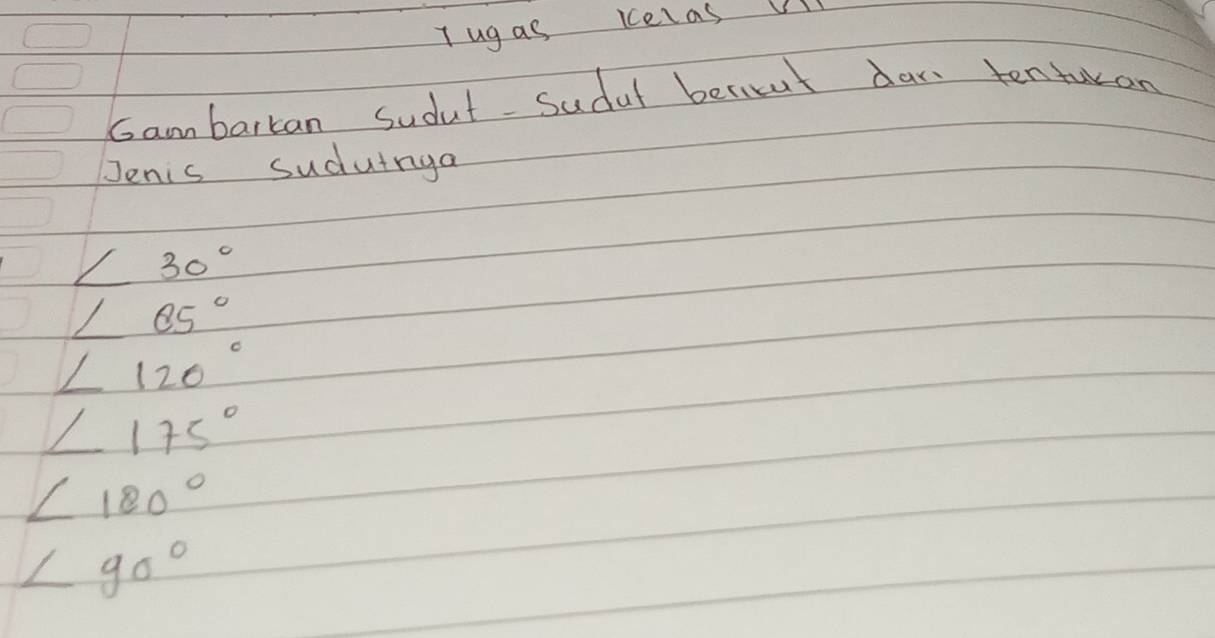 Tugas Kelas VII
Gambarkan sudut - sudut berikut dan tentukan
Jenis sudutnya
∠ 30°
∠ 85°
∠ 120°
∠ 175°
∠ 180°
∠ 90°